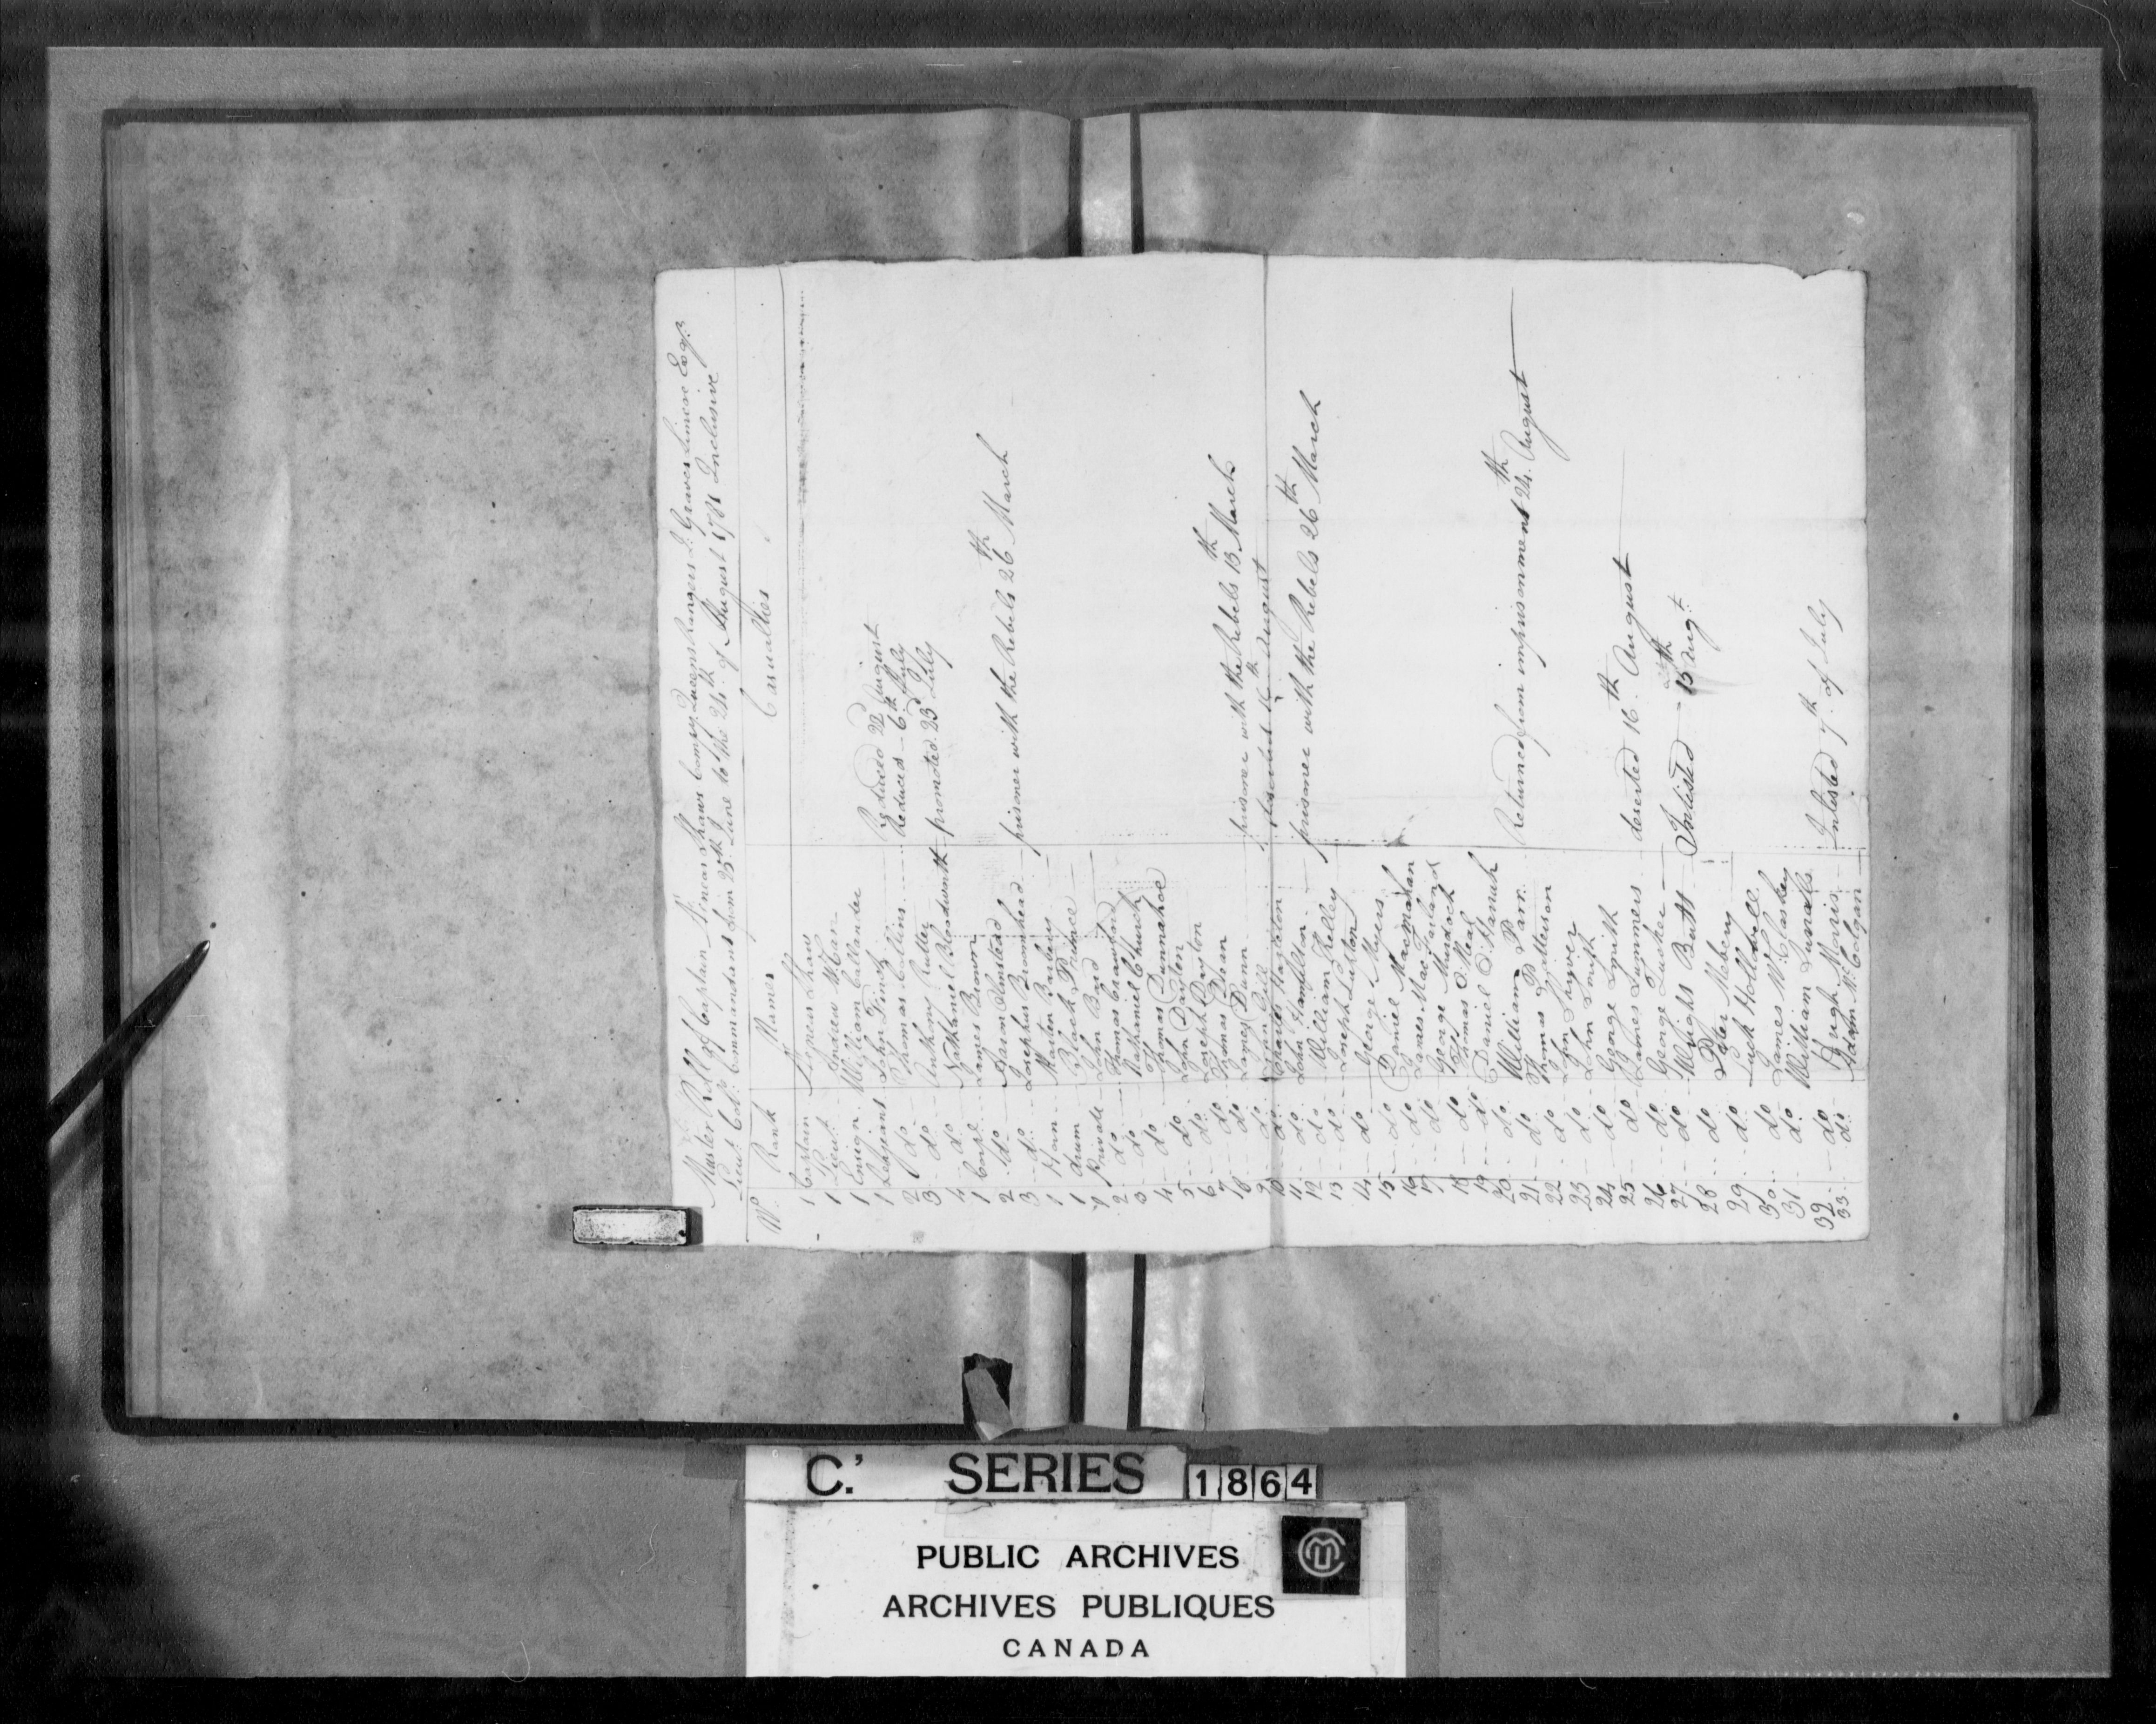 Muster Roll of Captain Æneas Shaws Compy Queens Rangers J. Graves Simcoe Esqr.
Lieut. Col. Commandant from 25th June to the 24th of August 1781 Inclusive
No. Rank Names Casualties
1 Captain Æneas Shaw
1 Lieut Andrew McCan
1 Ensign William Callander
1 Serjeant John Finch Reduced 22d August
2 do Thomas Collins Reduced 6th July
3 do Anthony Rutter
4 do Nathaniel Bloodworth promoted 23d July
1 Corpl James Brown
2 do Jason Olmstead
3 do Josephus Broomhead prisoner with the Rebels 26th March
1 Horn Martin Barbery
1 drum Black Prince
1 Private John Bard
2 do Thomas Crawford
3 do Nathaniel Church
4 do Thomas Dunnahoe
5 do John Dayton
6 do Joseph Dayton
7 do Thomas Dean
8 do James Dunn prisoner with the Rebels 13th March
9 do John Gill deserted 16th August
10 do Charles Hazleton
11 do John Hamilton prisoner with the Rebels 26th March
12 do William Kelley
13 do Joseph Lutton
14 do George Myers
15 do Daniel Macmahan
16 do James MacFarland
17 do George Murdoch
18 do Thomas O Neal
19 do Daniel O Hanah
20 do William Parr Returned from imprisonment 24th August
21 do Thomas Patterson
22 do John
23 do John Smith
24 do George Smith
25 do James Summers deserted 16th August
26 do George Tucker
27 do Wright Butt Inlisted 15th Augt
28 do Peter Mebery
29 do Luck Hollowell
30 do James McClaskey
31 do William
32 do Hugh Morris Inlisted 7th of July
33 do Adam McColgan
C.' SERIES 1864
PUBLIC ARCHIVES
ARCHIVES PUBLIQUES
CANADA